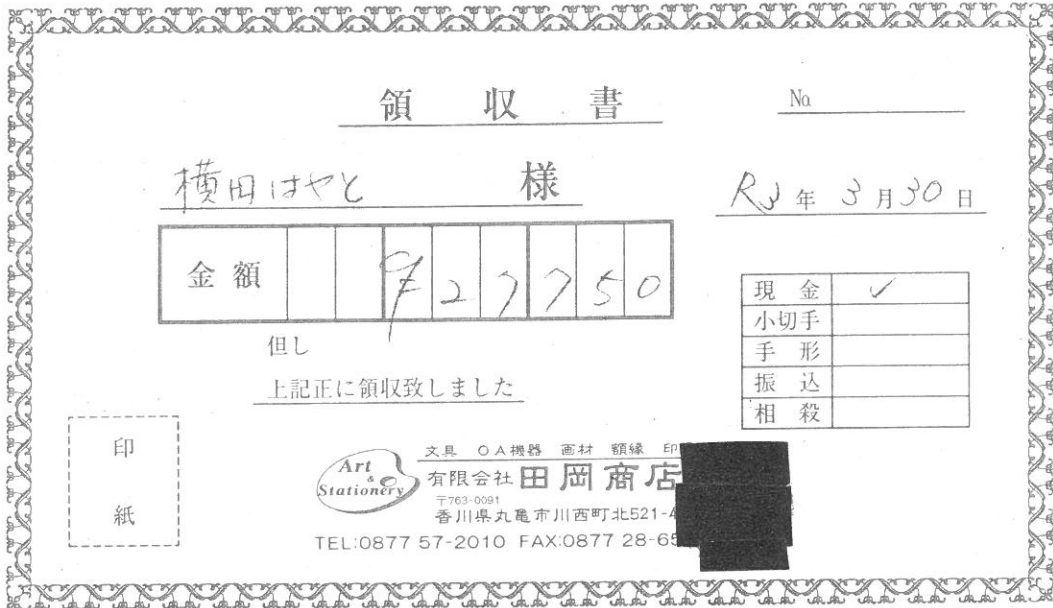 領収書
No.
横田はやと 様
R3年 3月30日
金額 ¥27750
現金 ✓
小切手
手形
振込
相殺
但し
上記正に領収致しました
印紙
Art & Stationery
文具 OA機器 画材 額縁 印
有限会社 田岡商店
〒763-0091
香川県丸亀市川西町北521-4
TEL:0877 57-2010 FAX:0877 28-65